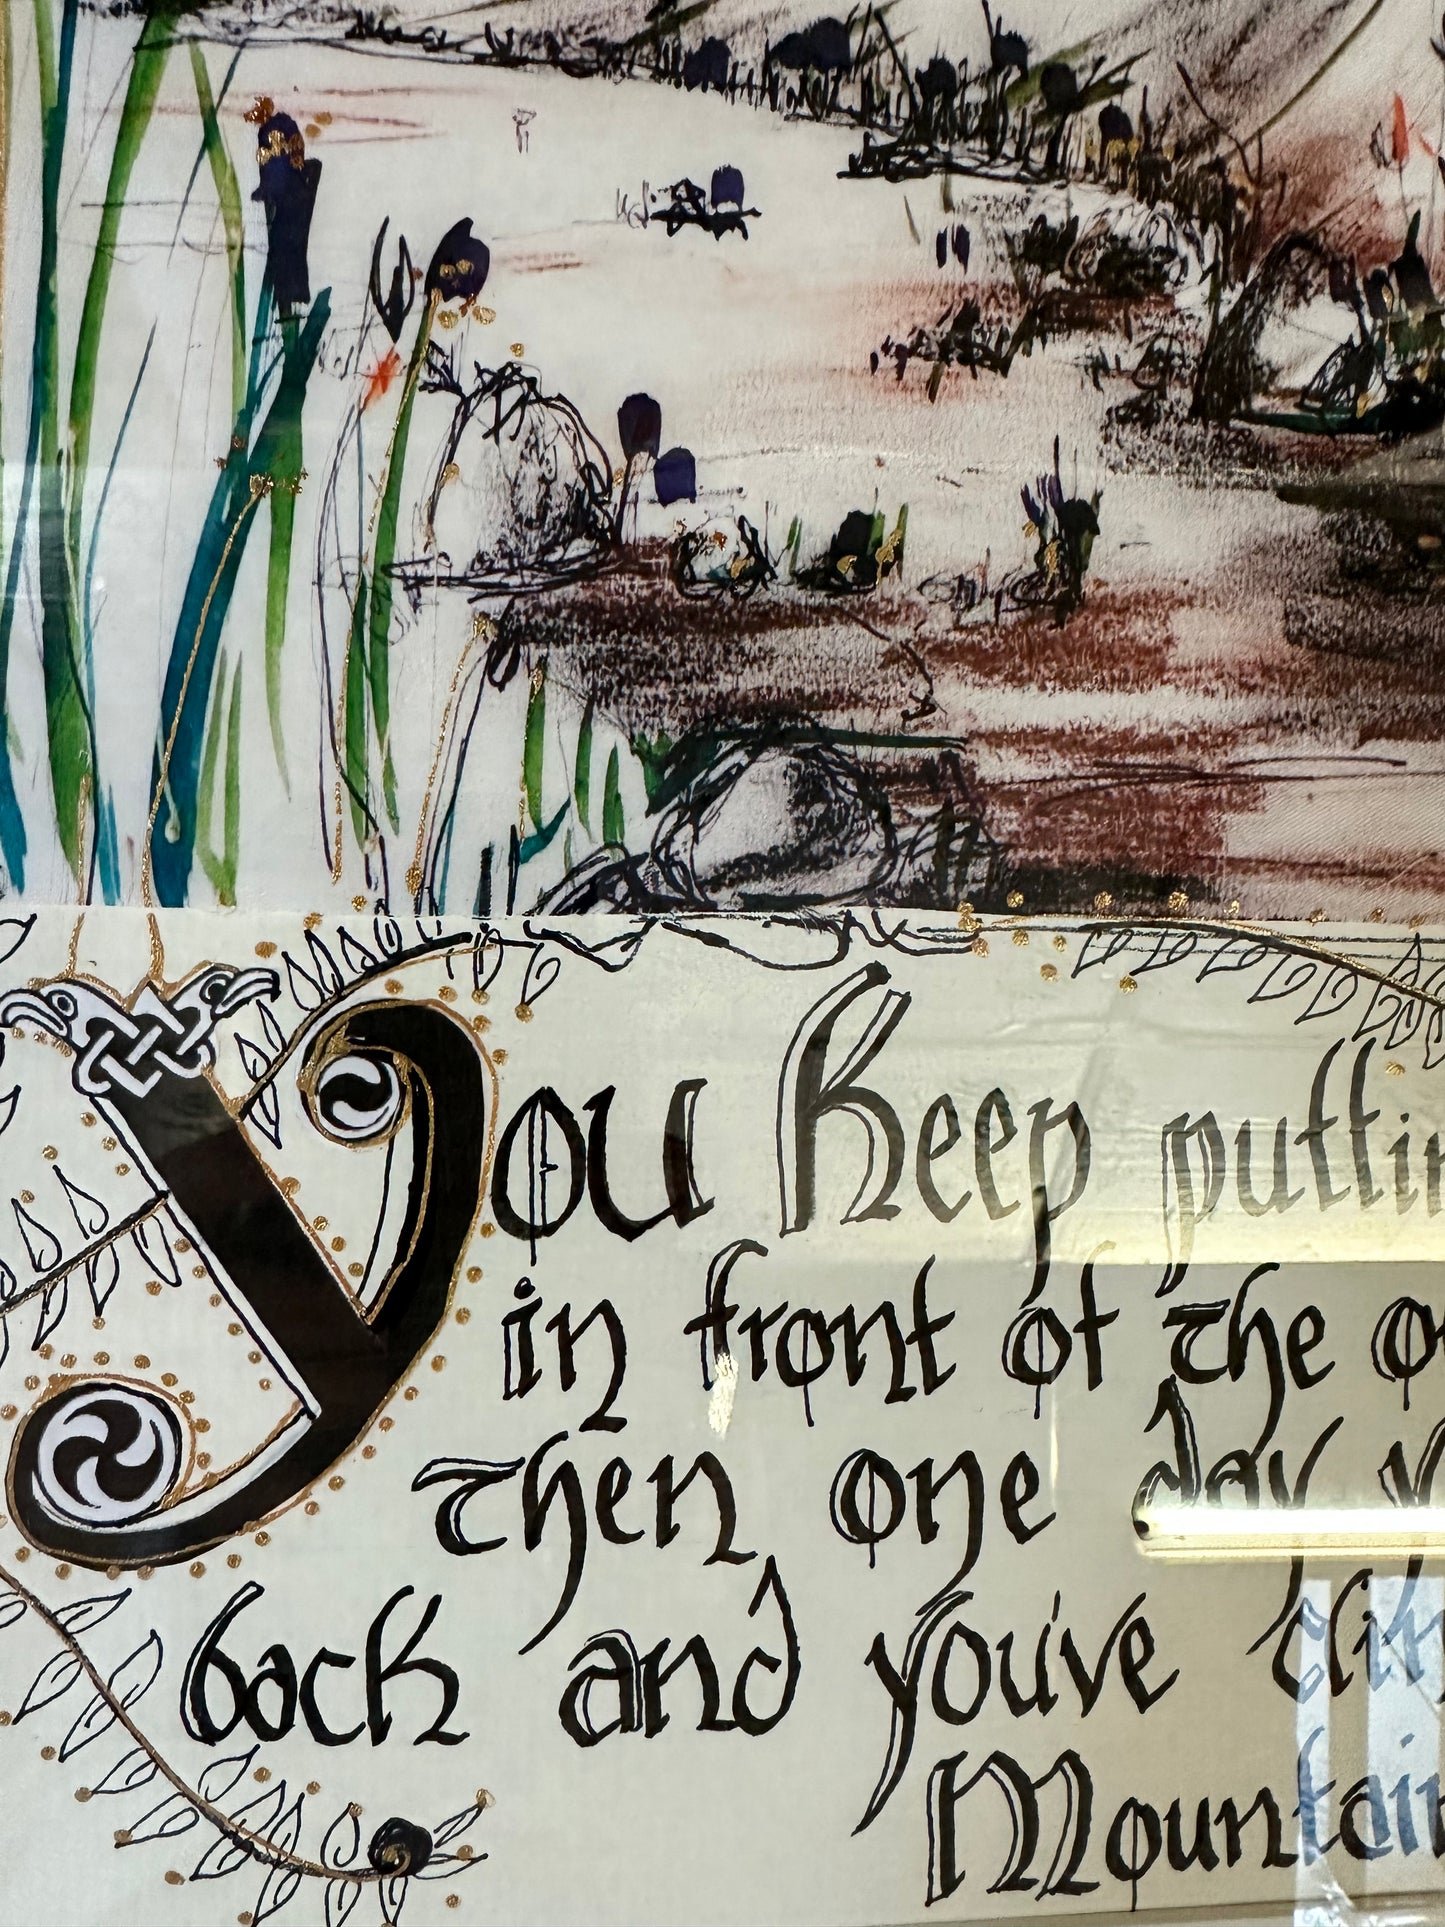 You Keep puttin
in front of the o
then one day y
back and you've clim
Mountain